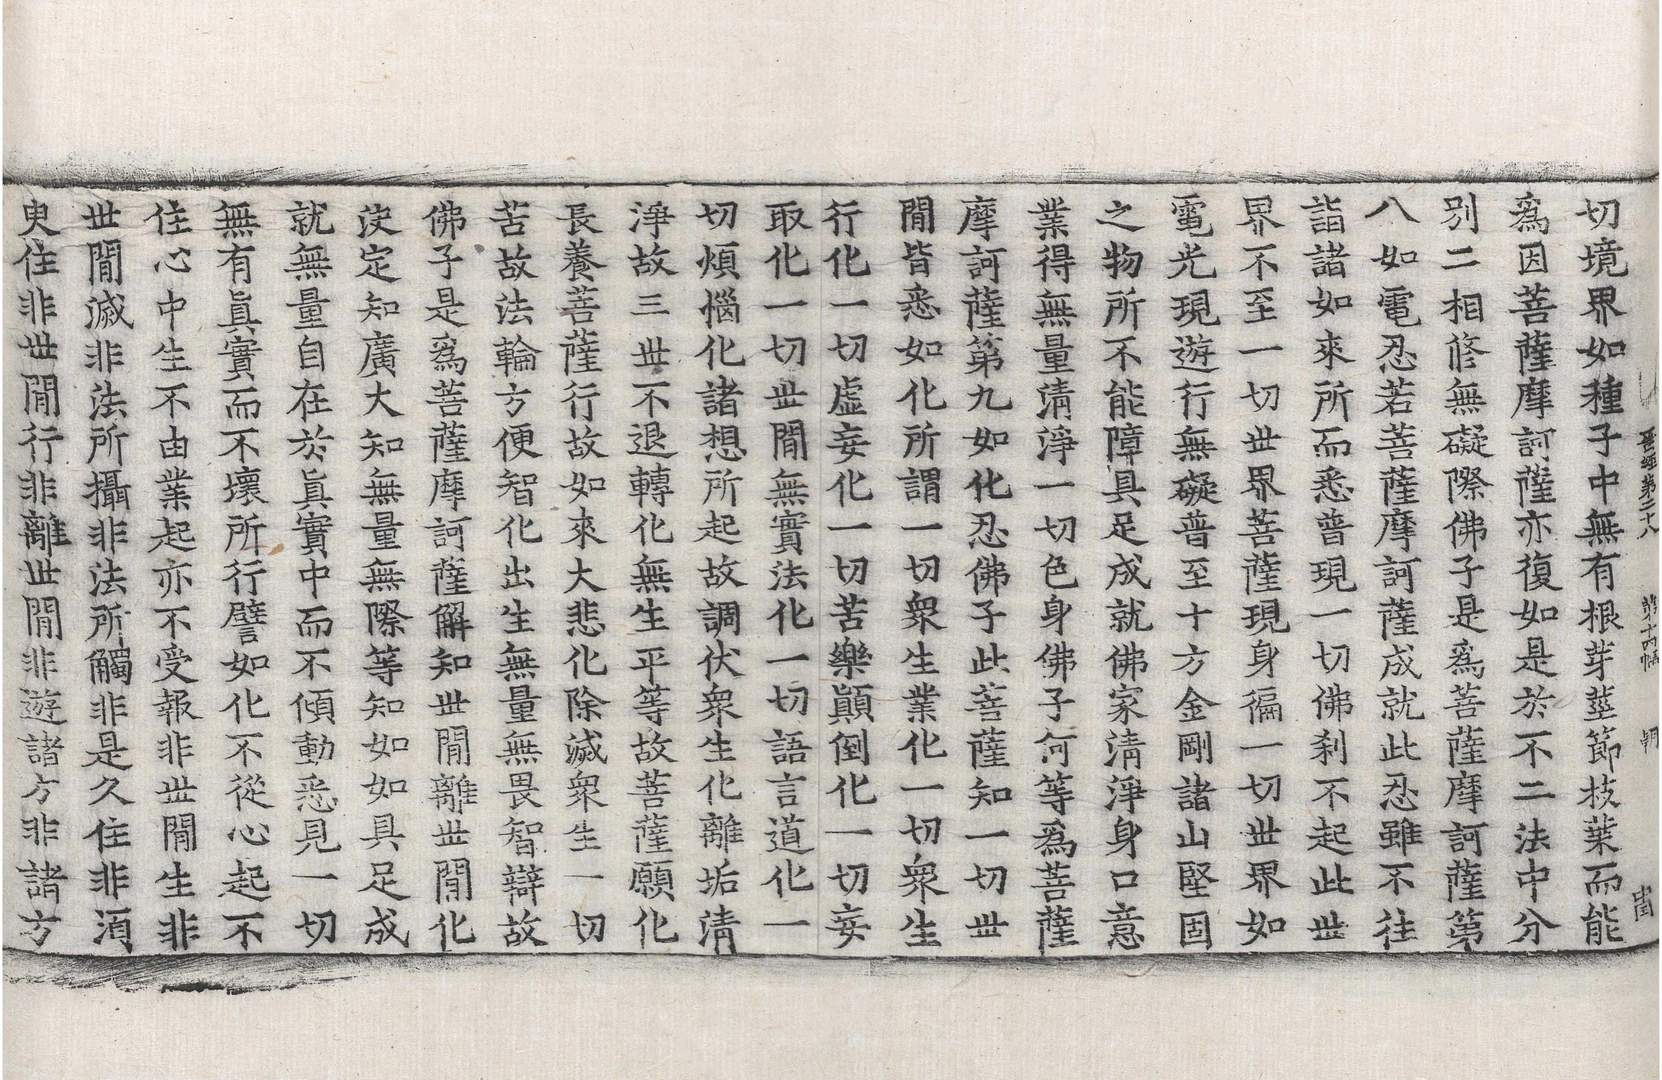 切境界如種子中無有根芽莖節枝葉而能
爲因菩薩摩訶薩亦復如是於不二法中分
別二相修無礙際佛子是爲菩薩摩訶薩第
八如電忍若菩薩摩訶薩成就此忍雖不往
詣諸如來所而悉普現一切佛刹不起此世
界不至一切世界菩薩現身徧一切世界如
電光現遊行無礙普至十方金剛諸山堅固
之物所不能障具足成就佛家清淨身口意
業得無量清淨一切色身佛子何等爲菩薩
摩訶薩第九如化忍佛子此菩薩知一切世
間皆悉如化所謂一切衆生業化一切衆生
行化一切虛妄化一切苦樂顚倒化一切妄
取化一切世間無實法化一切語言道化一
切煩惱化諸想所起故調伏衆生化離垢清
淨故三世不退轉化無生平等故菩薩願化
長養菩薩行故如來大悲化除滅衆生一切
苦故法輪方便智化出生無量無畏智辯故
佛子是爲菩薩摩訶薩解知世間離世間化
決定知廣大知無量無際等知如如具足成
就無量自在於眞實中而不傾動悉見一切
無有眞實而不壞所行譬如化不從心起不
住心中生不由業起亦不受報非世間生非
世間滅非法所攝非法所觸非是久住非須
臾住非世間行非離世間非遊諸方非諸方
晉經第二十八 第十四幅 朝